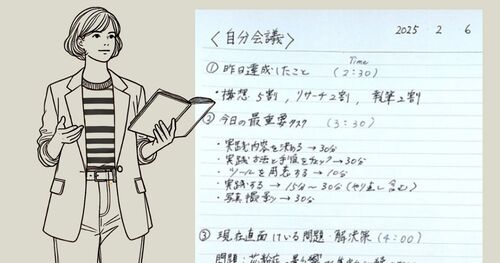 2025 2 6
〈自分会議〉
Time
① 昨日達成したこと (2:30)
・構想 5割, リサーチ2割, 執筆2割
② 今日の最重要タスク (3:30)
・実践内容を決める→30分
・実践方法と手順をチェック→30分
・ツールを用意する→10分
・実践する→15分~30分(やり直し含む)
・写真撮影→30分
③ 現在直面している問題・解決策 (4:00)
問題:花粉症